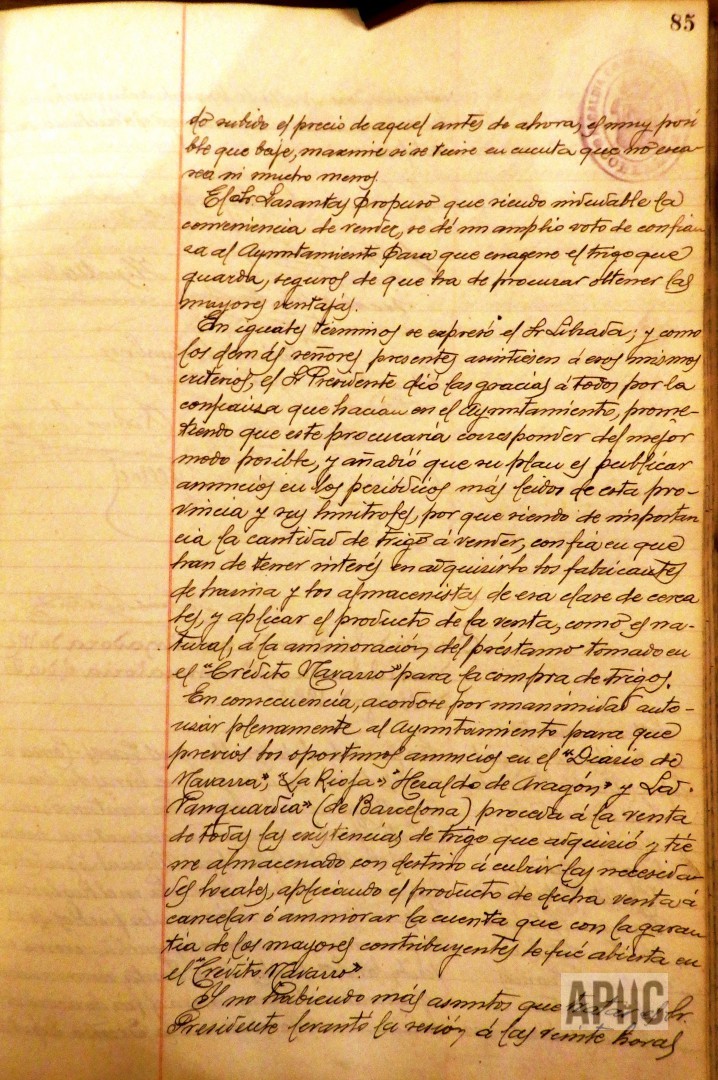 85
do subido el precio de aquel antes de ahora, es muy posi
ble que baje, maxime si se tiene en cuenta que no esca-
sea ni mucho menos
El Sr. Lasantas propuso que siendo indudable la
conveniencia de vender, se dé un amplio voto de confian
za al Ayuntamiento para que enagene el trigo que
guarda, seguros de que ha de procurar obtener las
mayores ventajas.
En iguales términos se expresó el Sr. Librada; y como
los demás señores presentes asintiesen á esos mismos
criterios, el Sr. Presidente dió las gracias á todos por la
confianza que hacían en el Ayuntamiento, prome-
tiendo que este procuraría corresponder del mejor
modo posible, y añadió que su plan es publicar
anuncios en los periódicos más leidos de esta pro-
vincia y sus limitrofes, por que siendo de importan
cia la cantidad de trigo á vender, confia en que
han de tener interés en adquirirlo los fabricantes
de harina y los almacenistas de esa clase de cerea
les, y aplicar el producto de la venta, como es na-
tural, á la aminoración del préstamo tomado en
el "Crédito Navarro" para la compra de trigos.
En consecuencia, acordose por unanimidad auto-
rizar plenamente al Ayuntamiento para que
previos los oportunos anuncios en el "Diario de
Navarra", "La Rioja" "Heraldo de Aragón" y La
Vanguardia" (de Barcelona) proceda á la venta
de todas las existencias de trigo que adquirió y tie
ne almacenado con destino á cubrir las necesida
des locales, aplicando el producto de dicha venta á
cancelar ó aminorar la cuenta que con la garan
tía de los mayores contribuyentes le fué abierta en
el "Crédito Navarro".
Y no habiendo más asuntos que tratar el Sr.
Presidente levantó la sesión á las veinte horas
APHC